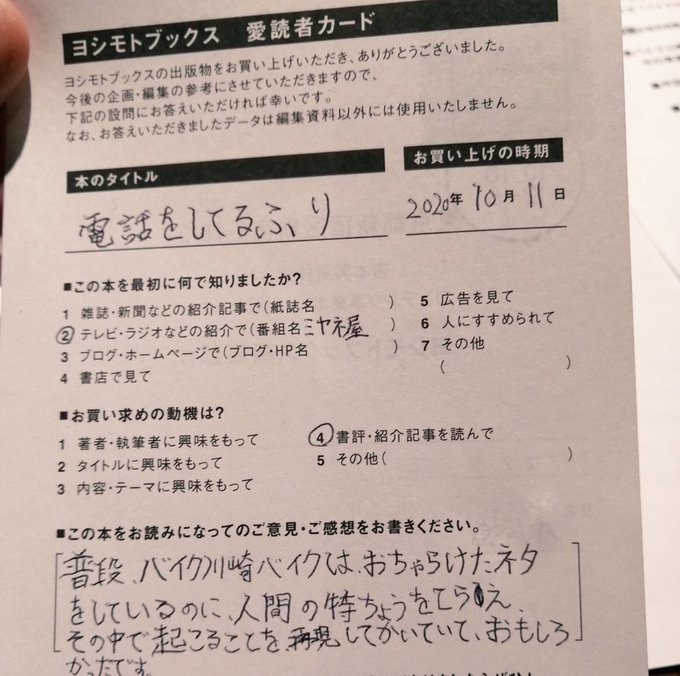 ヨシモトブックス 愛読者カード
ヨシモトブックスの出版物をお買い上げいただき、ありがとうございました。
今後の企画・編集の参考にさせていただきますので、
下記の設問にお答えいただければ幸いです。
なお、お答えいただきましたデータは編集資料以外には使用いたしません。
本のタイトル
電話をしてるふり
お買い上げの時期
2020年 10月 11日
■この本を最初に何で知りましたか?
1 雑誌・新聞などの紹介記事で(紙誌名 )
② テレビ・ラジオなどの紹介で(番組名ミヤネ屋 )
3 ブログ・ホームページで(ブログ・HP名 )
4 書店で見て
5 広告を見て
6 人にすすめられて
7 その他
( )
■お買い求めの動機は?
1 著者・執筆者に興味をもって
2 タイトルに興味をもって
3 内容・テーマに興味をもって
④ 書評・紹介記事を読んで
5 その他( )
■この本をお読みになってのご意見・ご感想をお書きください。
普段、バイク川崎バイクは、おちゃらけたネタ
をしているのに、人間の特ちょうをとらえ、
その中で起こることを、再現してかいていて、おもしろ
かったです。